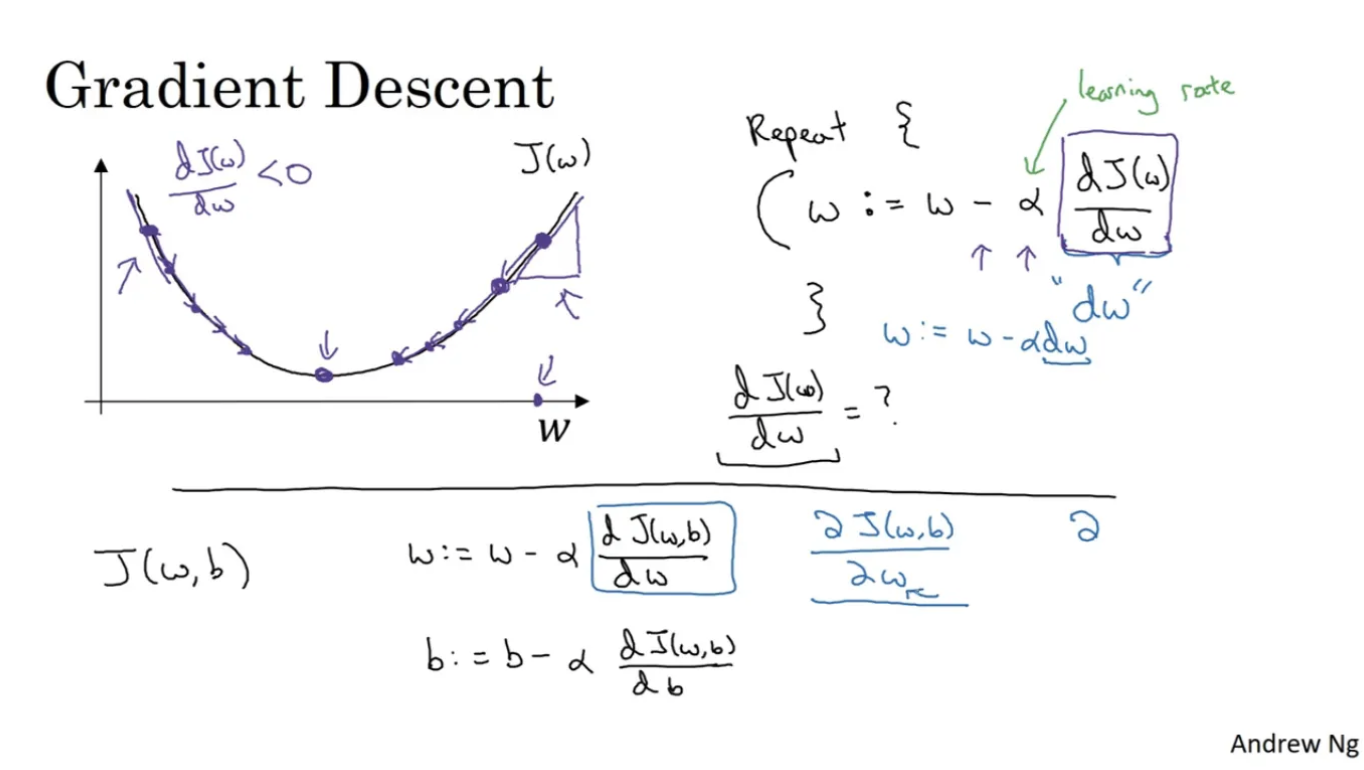 Gradient Descent
dJ(w)/dw <0
J(w)
w
learning rate
Repeat {
w := w - α dJ(w)/dw
"dw"
}
w := w - αdw
dJ(w)/dw = ?
J(w,b)
w := w - α dJ(w,b)/dw
∂J(w,b)/∂w
∂
b := b - α dJ(w,b)/db
Andrew Ng